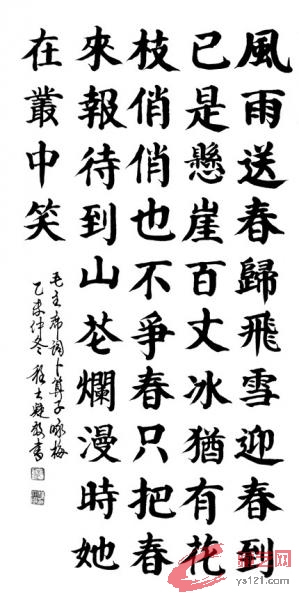 風雨送春歸飛雪迎春到
已是懸崖百丈冰猶有花
枝俏俏也不爭春只把春
來報待到山芲爛漫時她
在叢中笑
毛主席词卜算子咏梅
乙未仲冬書
艺网
ys121.com